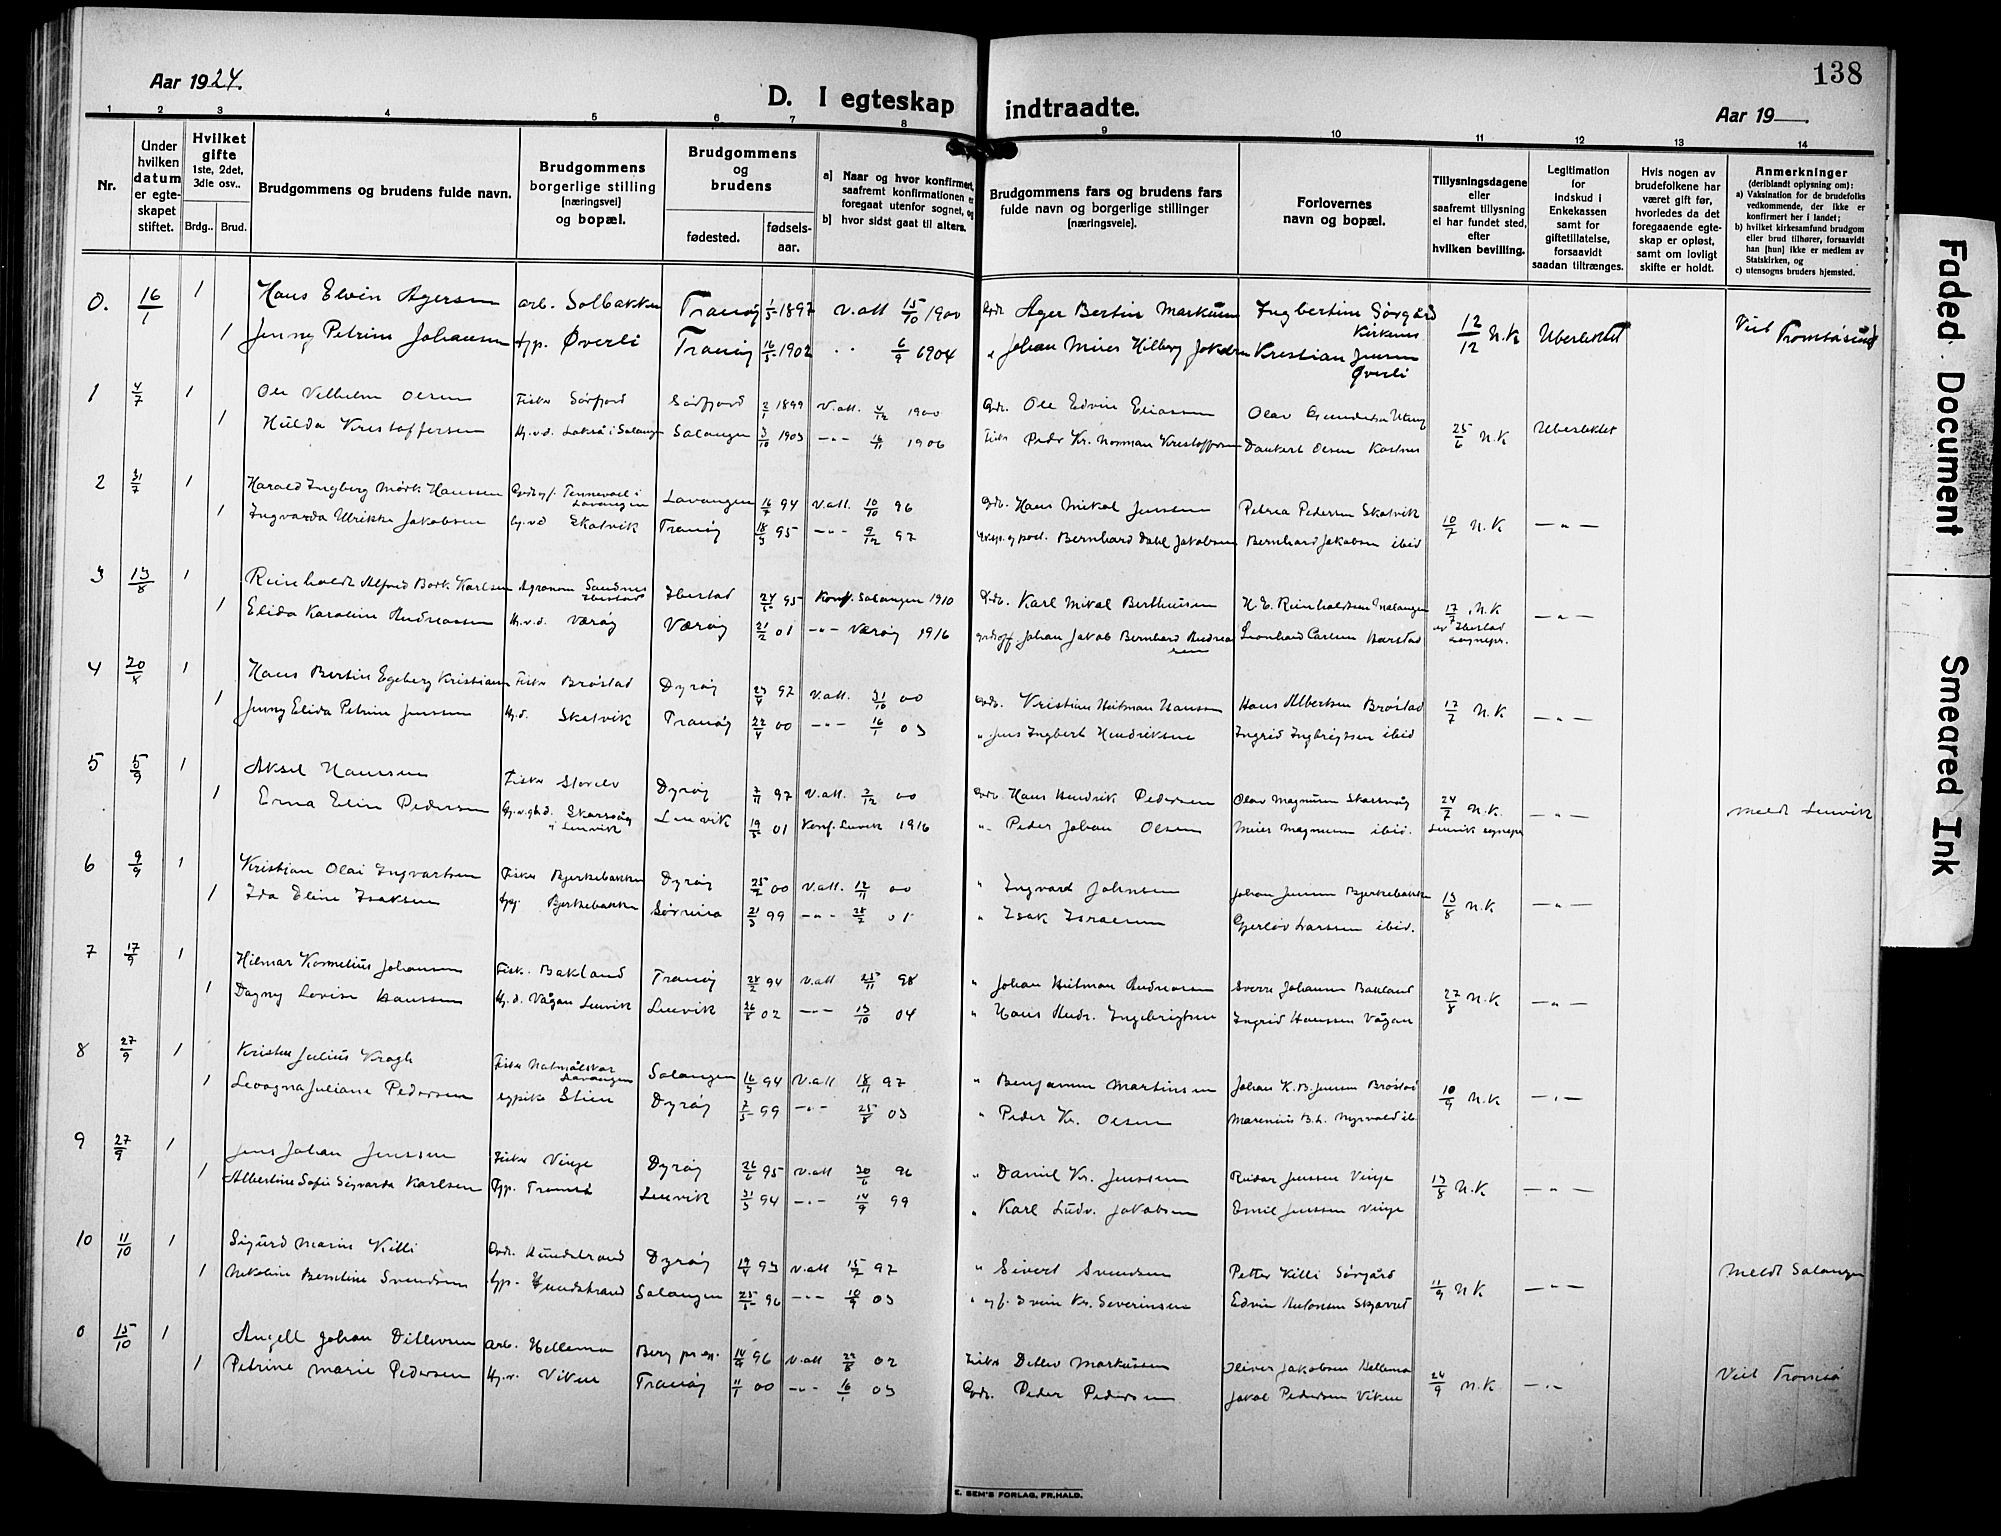 138
Aar 1924.
Aar 19
D. I egteskap indtraadte.
1 2 3 4 5 6 7 8 9 10 11 12 13 14
Nr.
Under hvilken datum er egteskapet stiftet.
Hvilket gifte 1ste, 2det, 3die osv..
Brdg.. Brud.
Brudgommens og brudens fulde navn.
Brudgommens borgerlige stilling (næringsvei) og bopæl.
Brudgommens og brudens
fødested. fødselsaar.
a) Naar og hvor konfirmert, saafremt konfirmationen er foregaat utenfor sognet, og
b) hvor sidst gaat til alters.
Brudgommens fars og brudens fars fulde navn og borgerlige stillinger (næringsveie).
Forlovernes navn og bopæl.
Tillysningsdagene eller saafremt tillysning ei har fundet sted, efter hvilken bevilling.
Legitimation for Indskud i Enkekassen samt for giftetillatelse, forsaavidt saadan tiltrænges.
Hvis nogen av brudefolkene har været gift før, hvorledes da det foregaaende egteskap er opløst, samt om lovligt skifte er holdt.
Anmerkninger (deriblandt oplysning om):
a) Vaksination for de brudefolks vedkommende, der ikke er konfirmert her i landet;
b) hvilket kirkesamfund brudgom eller brud tilhører, forsaavidt han (hun) ikke er medlem av Statskirken, og
c) utensogns bruders hjemsted.
0. 16/1 1 Hans Elvin Agersen arb. Solbakken Tranøy 1/5 1897 v.att 15/10 1900 Gdr. Ager Bertin Markusen Ingbertine Sørgård Kirkenes 12/12 N.K Ubeslektet Viet Tromsøsund
1 Jenny Petrine Johansen typ. Øverli Tranøy 16/5 1902 " " 6/9 1904 " Johan Meier Hilberg Jakobsen Kristian Jensen Øverli
1 4/7 1 Ole Vilhelm Olsen Fisker Sørfjord Sørfjord 2/1 1899 v.att. 4/12 1900 Gdr. Ole Edvin Eliassen Olav 25/6 N.K Ubeslektet
1 Hulda Kristoffersen Hj.v.d. Lakså i Salangen Salangen 3/10 1903 -"- 16/11 1906 Fisk. Peder Kr. Norman Kristoffersen Dankert Olsen Kastnes
2 31/7 1 Harald Ingberg Mørk Hanssen Tennevoll i Lavangen Lavangen 16/7 94 v.att. 10/10 96 Gdr. Hans Mikal Jenssen Petrea Pedersen Skatvik 10/7 N.K -"-
1 Ingvarda Ulrikke Jakobsen Hj.v.d Skatvik Tranøy 18/3 95 -"- 9/12 97 Bernhard Dahl Jakobsen Bernhard Jakobsen ibid
3 13/8 1 Reinholdt Alfred Bork Karlsen Agronom Sandnes Ibestad Ibestad 24/6 95 Konf. Salangen 1910 Gdr. Karl Mikal Bertheusen H. E. Reinholdtsen Salangen 17/7 N.K av Ibestad sognepr. -"-
1 Elida Karoline Andreassen Hj.v.d. Værøy Værøy 21/2 01 -"- Værøy 1916 Johan Jakob Bernhard Andreassen Leonhard Carlsen Harstad
4 20/8 1 Hans Bertin Egeberg Kristiansen Fisker Brøstad Dyrøy 23/4 97 v.att. 31/10 00 Gdr. Kristian Heitman Hansen Hans Albertsen Brøstad 17/7 N.K -"-
1 Jenny Elida Petrine Jenssen Hj.d. Skatvik Tranøy 22/4 00 -"- 16/1 03 " Jens Ingbert Hendriksen Ingrid Ingbrigtsen ibid
5 5/9 1 Aksel Hanssen Fisker Storelv Dyrøy 7/11 97 v.att. 3/12 00 Gdr. Hans Hendrik Pedersen Olav Magnussen Skarsvåg 24/7 N.K. Lenvik sognepr -"- Meldt Lenvik
1 Erna Elin Pedersen Skarsvåg i Lenvik Lenvik 19/5 01 Konf. Lenvik 1916 " Peder Johan Olsen Meier Magnussen ibid.
6 9/9 1 Kristian Olai Ingvartsen Fisker Bjerkebakken Dyrøy 25/2 00 v.att. 12/11 00 " Ingvard Johnsen Johan Jensen Bjerkebakken 13/8 N.K -"-
1 Ida Eline Isaksen typ. Bjerkebakken Sørreisa 21/3 99 -"- 28/2 01 " Isak Israelsen Gjerløv Larssen ibid.
7 17/9 1 Hilmar Kornelius Johansen Fisk. Bakland Tranøy 28/2 94 v.att 25/11 98 " Johan Hitman Andreassen Sverre Johansen Bakland 27/8 N.K -"-
1 Dagny Lovise Hanssen Hj.d. Vågan Lenvik Lenvik 26/8 02 -"- 13/10 04 " Hans Andr. Ingebrigtsen Ingrid Hanssen Vågan
8 27/9 1 Kristen Julius Krogh Fisker Lavangen Salangen 16/3 94 v.att 18/11 97 " Benjamin Martinsen Johan K. B. Jensen Brøstad 10/9 N.K -"-
1 Levagna Juliane Pedersen typike Stien Dyrøy 7/5 99 -"- 25/8 03 " Peder Kr. Olsen Marenius B.L. Nyvold ib
9 27/9 1 Jens Johan Jenssen Fisker Vinje Dyrøy 26/6 95 v.att 20/6 96 " Daniel Kr. Jenssen Reidar Jenssen Vinje 13/8 N.K -"-
1 Albertine Sofie Sigvarda Karlsen Typ. Tromsø Lenvik 31/3 94 -"- 14/9 99 " Karl Ludv. Jakobsen Emil Jenssen Vinje
10 11/10 1 Sigurd Marin Killi Gdr. Hundstrand Dyrøy 19/4 93 v.att 15/2 97 " Sivert Svendsen Petter Killi Sørgård 11/9 N.K -"- Meldt Salangen
1 Nikoline Berntine Svendsen typ. Hundstrand Salangen 25/5 96 -"- 10/9 03 " Svein Kr. Severinsen Edvin Antonsen Skjavet
0 15/10 1 Angell Johan Ditlevsen arb. Hellemo Berg pr.gj. 14/9 96 v.att 22/8 02 Fisker Detlev Markussen Oliver Jakobsen Hellemo 24/9 N.K. -"- Viet Tromsø
1 Petrine Marie Pedersen Hj.v. Viken Tranøy 11/1 00 -"- 16/1 03 Gdr. Peder Pedersen Jakob Pedersen Viken
E. SEM'S FORLAG, FR.HALD.
Faded Document
Smeared Ink